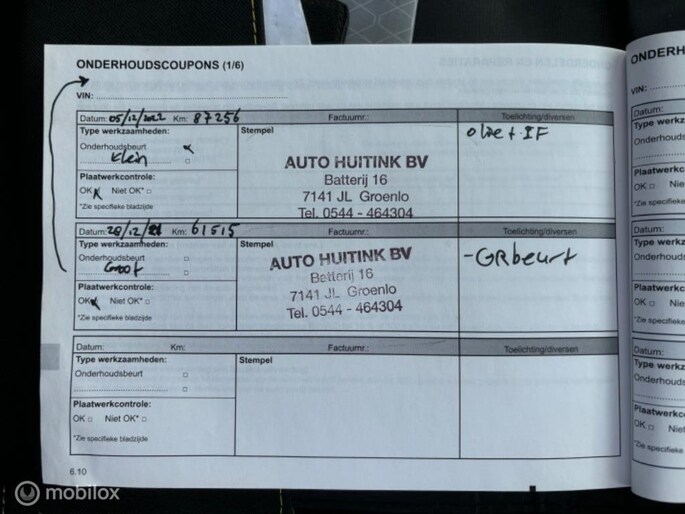 ONDERHOUDSCOUPONS (1/6)
VIN:
Datum: 05/12/2022 Km: 87256 Factuurnr.: Toelichting/diversen
Type werkzaamheden: Stempel
Onderhoudsbeurt
Klein
Plaatwerkcontrole:
OK Niet OK*
*Zie specifieke bladzijde
AUTO HUITINK BV
Batterij 16
7141 JL Groenlo
Tel. 0544 - 464304
olie + IF
Datum: 28/12/21 Km: 61515 Factuurnr.: Toelichting/diversen
Type werkzaamheden: Stempel
Onderhoudsbeurt
Groot
Plaatwerkcontrole:
OK Niet OK*
*Zie specifieke bladzijde
AUTO HUITINK BV
Batterij 16
7141 JL Groenlo
Tel. 0544 - 464304
-GRbeurt
Datum: Km: Factuurnr.: Toelichting/diversen
Type werkzaamheden: Stempel
Onderhoudsbeurt
Plaatwerkcontrole:
OK Niet OK*
*Zie specifieke bladzijde
6.10
ONDERH
VIN:
Datum:
Type werkz
Onderhouds
Plaatwerkco
OK Niet
*Zie specifieke
Datum:
Type werkz
Onderhouds
Plaatwerkco
OK Niet
*Zie specifieke
Datum:
Type werkz
Onderhouds
Plaatwerkco
OK Niet
*Zie specifieke
mobilox